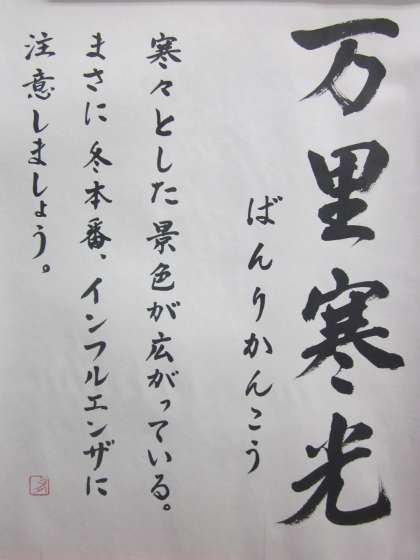 万里寒光
ばんりかんこう
寒々とした景色が広がっている。
まさに冬本番、インフルエンザに
注意しましょう。